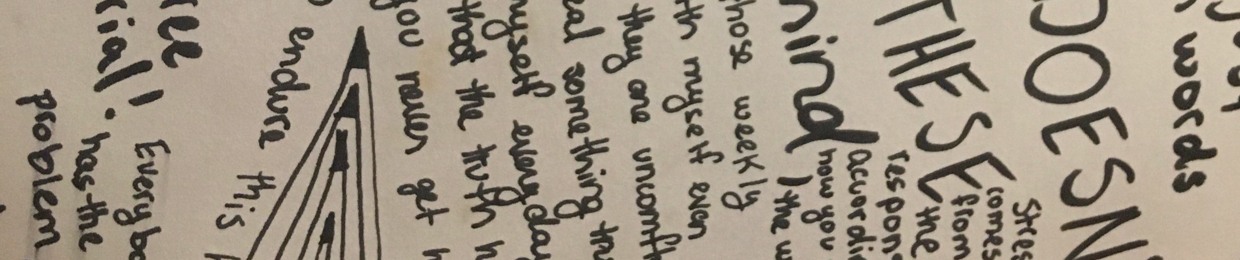 words
DOESN
Stres
comes
THESE from
the
respon
acordin
mind how you
, the w
hose weekly
th myself even
they are uncomf
eal something tha
myself everyday
that the truth h
you never get h
endure this
Everybo
cial! has the
problem